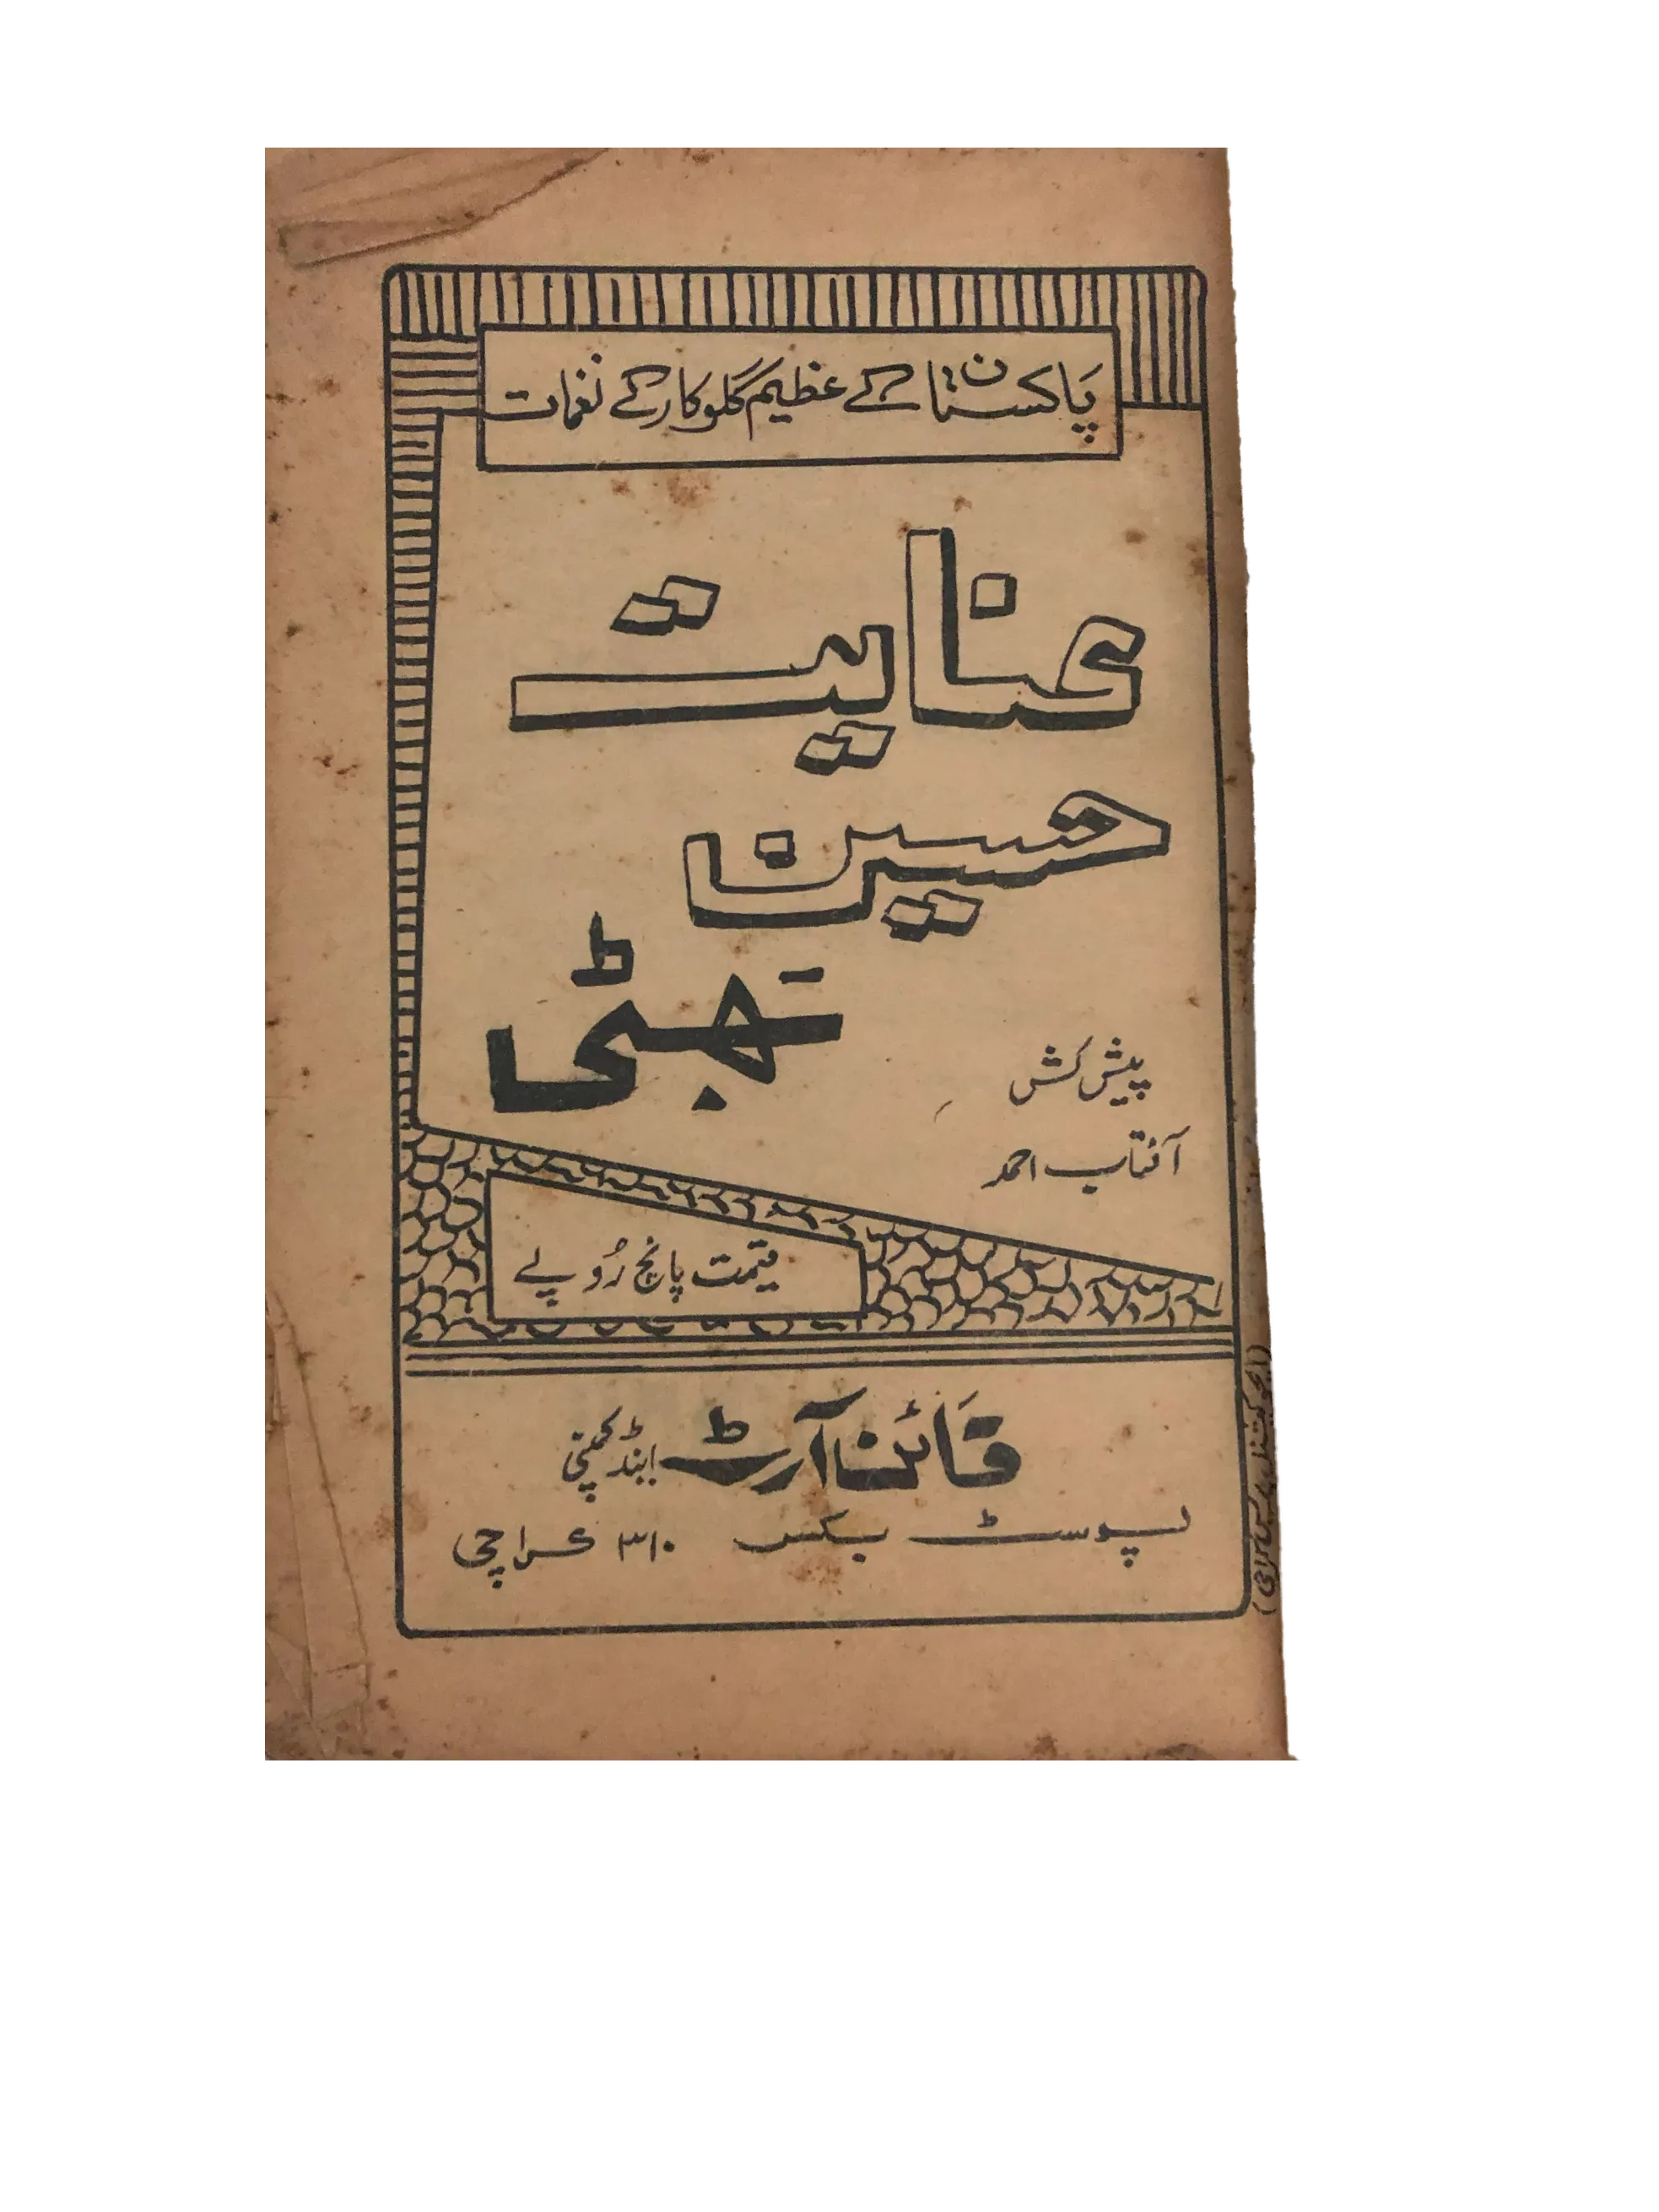 پاکستان کے عظیم گلوکار کے نغمات
عنایت
حسین
بھٹی
پیش کش
آفتاب احمد
قیمت پانچ روپے
فائن آرٹ اینڈ کمپنی
پوسٹ بکس ۳۱۰ کراچی